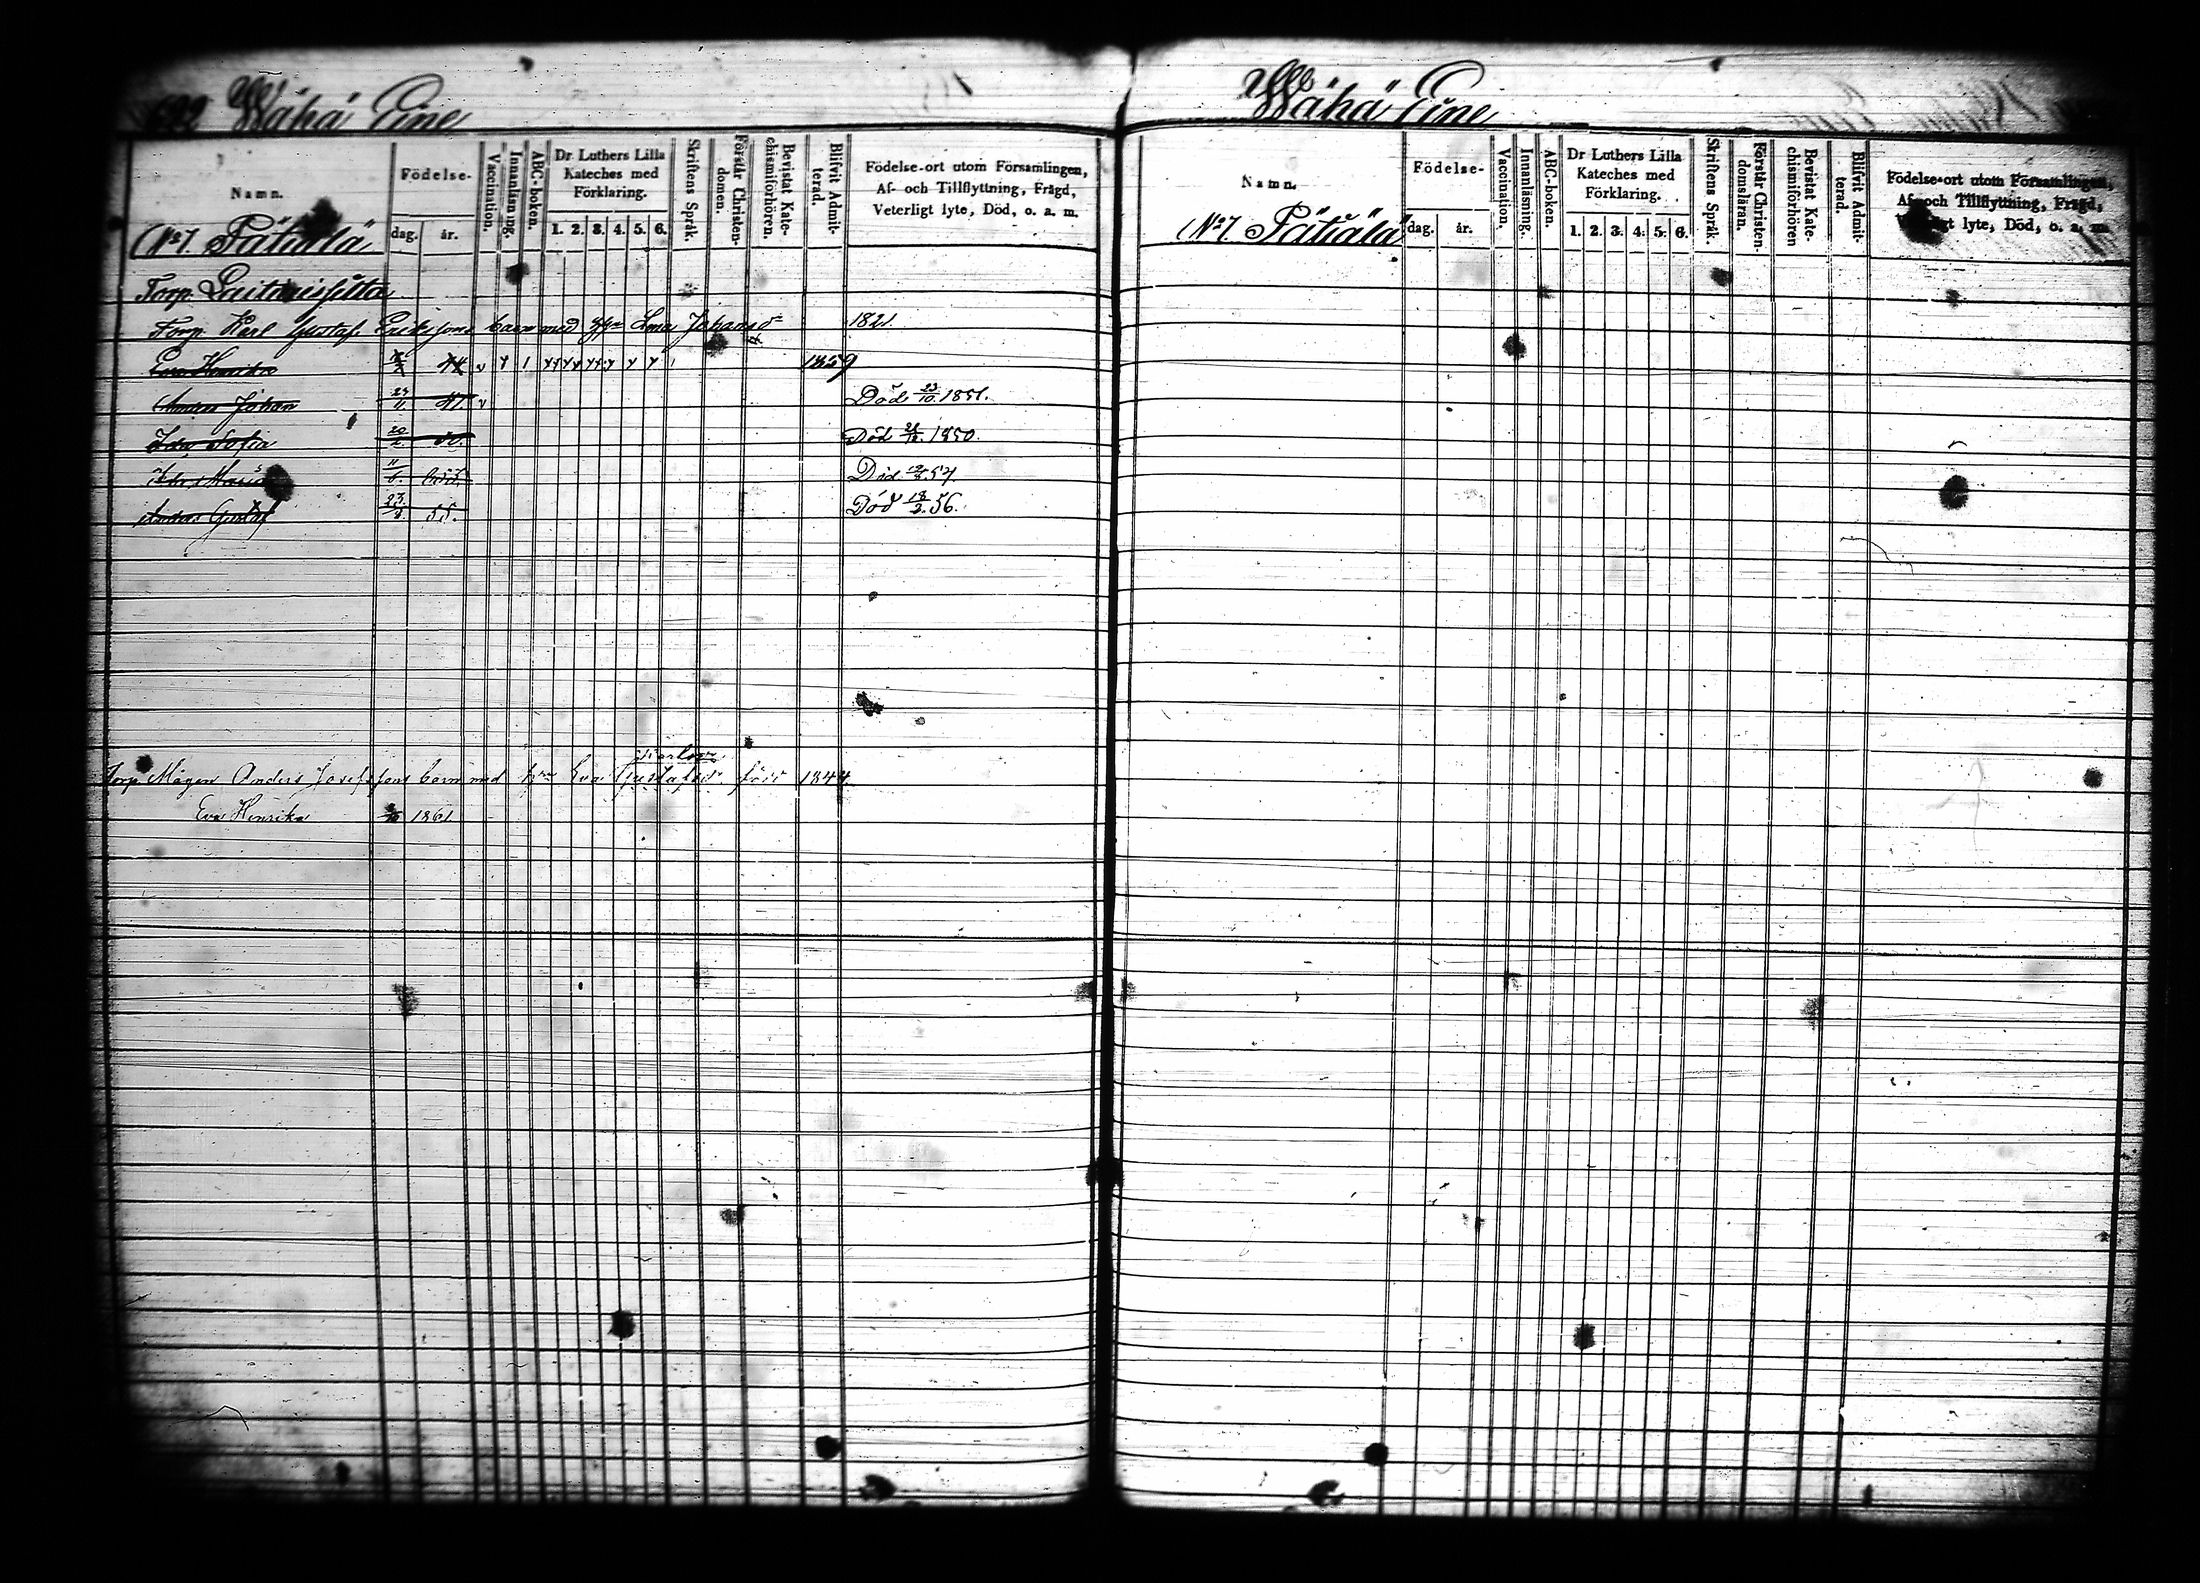 622 Wähä Eine
Namn.
Födelse-
dag. år.
Vaccination.
Innanläsning.
ABC-boken.
Dr Luthers Lilla Kateches med Förklaring.
1. 2. 3. 4. 5. 6.
Skriftens Språk.
Förstår Christendomen.
Bevistat Katechismiförhörn.
Blifvit Admitterad.
Födelse-ort utom Församlingen,
Af- och Tillflyttning, Frägd,
Veterligt lyte, Död, o. a. m.
No 7. Pätiälä
Torp
Torp. Karl Gustaf Eriksons barn med Johansd 1821.
Eva Henrika 44 v 1859
Anders Johan 23/11 47. v Död 23/10 1851.
Ida Sofia 20/2 50. Död 1850.
Ida Maria 11/6 Död 57.
Anders Gustaf 23/3 55. Död 18/3 56.
Karlsdr
Torp Mågen Anders Josefssons barn med Eva Gustafsd. född 1844
Eva Henrika 1861
Wähä Eine
Namn.
Födelse-
dag. år.
Vaccination.
Innanläsning.
ABC-boken.
Dr Luthers Lilla Kateches med Förklaring.
1. 2. 3. 4. 5. 6.
Skriftens Språk.
Förstår Christendomsläran.
Bevistat Katechismiförhören
Blifvit Admitterad.
Födelse-ort utom Församlingen,
Af- och Tillflyttning, Frägd,
lyte, Död, o. a. m.
No 7. Pätiälä